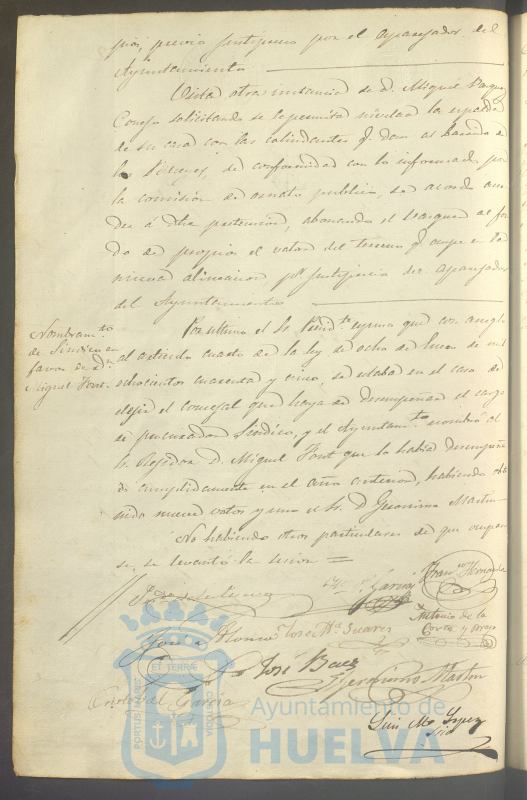 pios, previo justiprecio por el aparejador del
Ayuntamiento.
Vista otra instancia de D. Miguel Vazquez
Conejo solicitando se le permita nivelar la espalda
de su casa con las colindantes q. dan al
de conformidad con lo informado por
la comision de ornato publico, se acordó acce
der á dha pretencion, abonando el Vazquez al fon
do de propios el valor del terreno q. ocupe en la
nueva alineacion pr. justiprecio del aparejador
del Ayuntamiento
Nombramto.
de Sindico en
favor de Dn.
Miguel Font.
Por ultimo el Sr. Presidte. espuso que con arreglo
al articulo cuarto de la ley de ocho de Enero de mil
ochocientos cuarenta y cinco, se estaba en el caso de
elegir el concejal que haya de desempeñar el cargo
de procurador Sindico, y el Ayuntamto. nombró al
Sr. Regidor D. Miguel Font que lo habia desempeña
do cumplidamente en el año anterior, habiendo obte
nido nueve votos y uno el Sr. D. Geronimo Martin
No habiendo otros particulares de que ocupar
se, se levantó la sesion =
Garcia
Franco. Hernandez
José Ma. Suares
Antonio de la
Corte y
José Baez
Geronimo Martin
Cristobal Garcia
Luis Mo. Lopez
Srio
ET TERRÆ
PORTUS MARIS
CUSTODIA
Ayuntamiento de
HUELVA